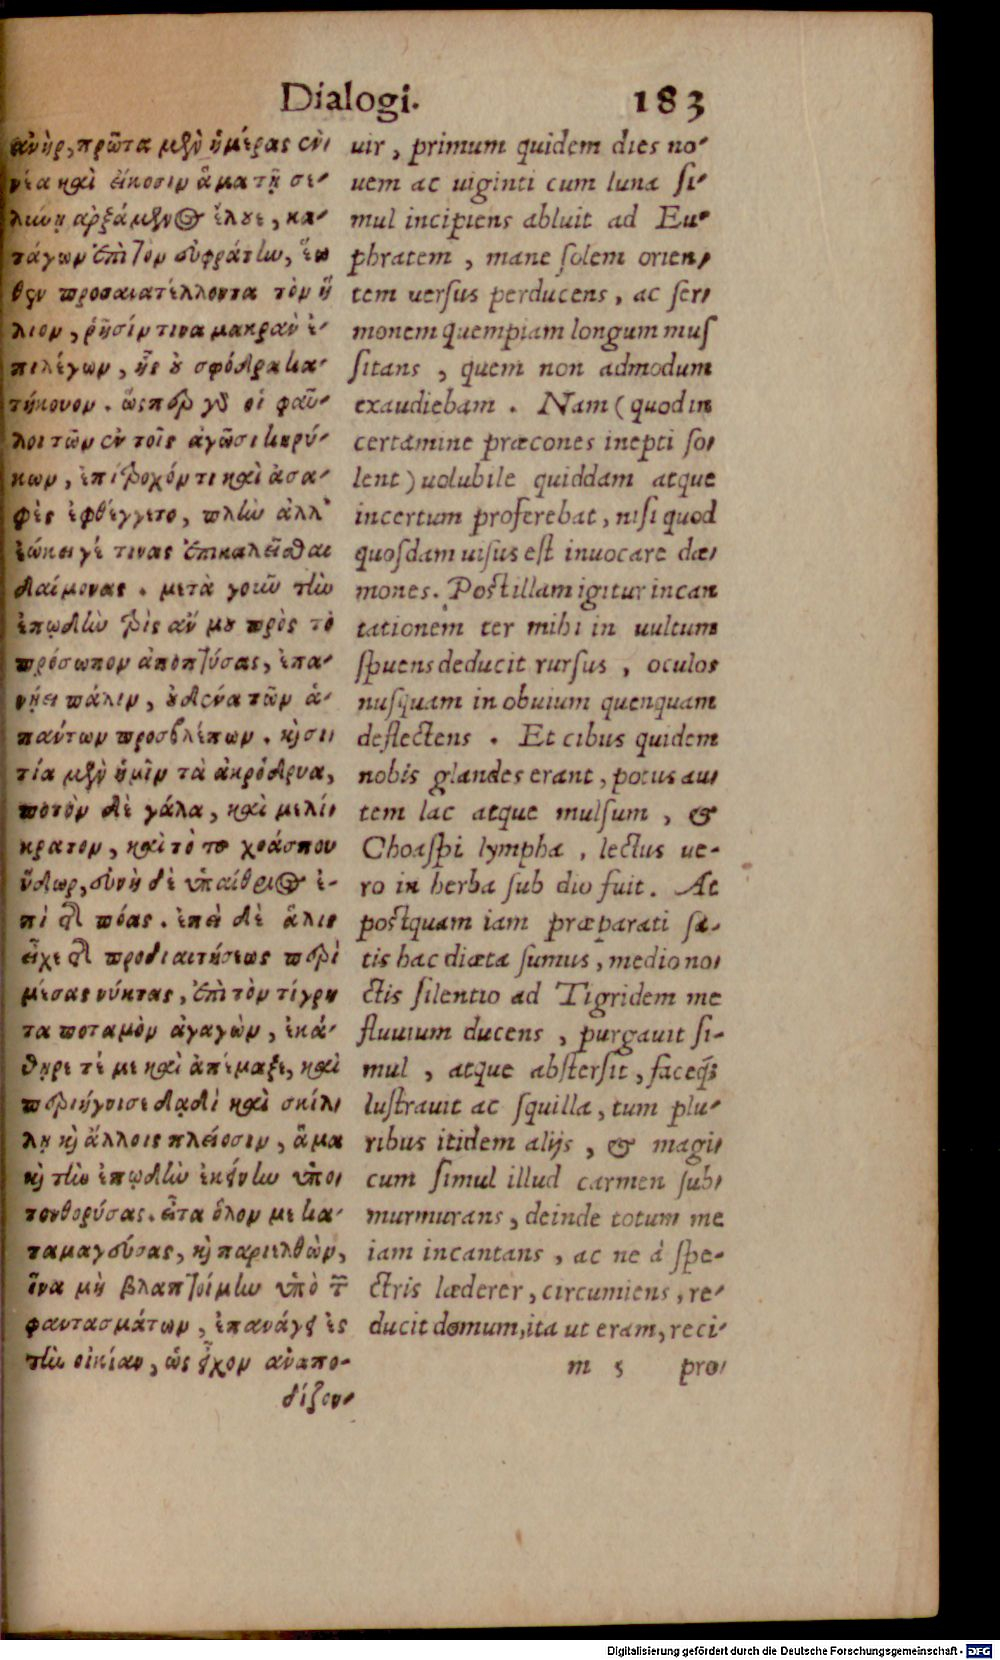 Dialogi. 183
ἀνὴρ, πρῶτα μὲν ἡμέρας ἐν-
νέα καὶ εἴκοσιν ἅμα τῇ σε-
λήνῃ ἀρξάμενος ἔλουε, κα-
τάγων ἐπὶ τὸν εὐφράτην, ἕω
θεν προσανατέλλοντα τὸν ἥ
λιον, ῥῆσίν τινα μακρὰν ἐ-
πιλέγων, ἧς οὐ σφόδρα κα-
τήκουον. ὥσπερ γὰρ οἱ φαῦ-
λοι τῶν ἐν τοῖς ἀγῶσι κηρύ-
κων, ἐπίτροχόν τι καὶ ἀσα-
φὲς ἐφθέγγετο, πλὴν ἀλλ'
ἐῴκει γέ τινας ἐπικαλεῖσθαι
δαίμονας. μετὰ γοῦν τὴν
ἐπῳδὴν τρὶς ἄν μου πρὸς τὸ
πρόσωπον ἀποπτύσας, ἐπα-
νῄει πάλιν, οὐδένα τῶν ἀ-
παντων προσβλέπων. καὶ σι-
τία μὲν ἡμῖν τὰ ἀκρόδρυα,
ποτὸν δὲ γάλα, καὶ μελί-
κρατον, καὶ τὸ τοῦ χοάσπου
ὕδωρ, εὐνὴ δὲ ὑπαίθριος ἐ-
πὶ τῆς πόας. ἐπεὶ δὲ ἅλις
εἶχε τῆς προδιαιτήσεως περὶ
μέσας νύκτας, ἐπὶ τὸν τίγρη
τα ποταμὸν ἀγαγὼν, ἐκά-
θηρε τέ με καὶ ἀπέμαξε, καὶ
περιήγνισε δᾳδὶ καὶ σκίλ-
λῃ καὶ ἄλλοις πλείοσιν, ἅμα
καὶ τὴν ἐπῳδὴν ἐκείνην ὑπο-
τονθορύσας. εἶτα ὅλον με κα-
ταμαγεύσας, καὶ περιελθὼν,
ἵνα μὴ βλαπτοίμην ὑπὸ τῶν
φαντασμάτων, ἐπανάγει ἐς
τὴν οἰκίαν, ὡς εἶχον ἀναπο-
δίζον-
uir, primum quidem dies no-
uem ac uiginti cum luna ſi-
mul incipiens abluit ad Eu-
phratem, mane ſolem orien-
tem uerſus perducens, ac ſer-
monem quempiam longum muſ
ſitans, quem non admodum
exaudiebam. Nam (quod in
certamine præcones inepti ſo-
lent) uolubile quiddam atque
incertum proferebat, niſi quod
quoſdam uiſus eſt inuocare dæ-
mones. Poſt illam igitur incan
tationem ter mihi in uultum
ſpuens deducit rurſus, oculos
nuſquam in obuium quenquam
deflectens. Et cibus quidem
nobis glandes erant, potus au-
tem lac atque mulſum, &
Choaſpi lympha, lectus ue-
ro in herba ſub dio fuit. At
poſtquam iam præparati ſa-
tis hac diæta ſumus, medio no-
ctis ſilentio ad Tigridem me
fluuium ducens, purgauit ſi-
mul, atque abſterſit, faceq́;
luſtrauit ac ſquilla, tum plu-
ribus itidem alijs, & magi-
cum ſimul illud carmen ſub-
murmurans, deinde totum me
iam incantans, ac ne à ſpe-
ctris læderer, circumiens, re-
ducit domum, ita ut eram, reci-
m 5 pro-
Digitalisierung gefördert durch die Deutsche Forschungsgemeinschaft - DFG